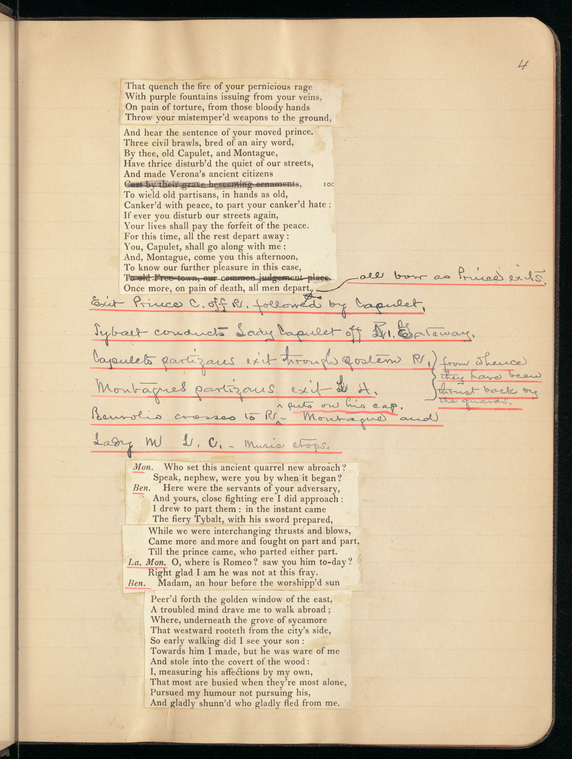 4
That quench the fire of your pernicious rage
With purple fountains issuing from your veins,
On pain of torture, from those bloody hands
Throw your mistemper'd weapons to the ground,
And hear the sentence of your moved prince.
Three civil brawls, bred of an airy word,
By thee, old Capulet, and Montague,
Have thrice disturb'd the quiet of our streets,
And made Verona's ancient citizens
Cast by their grave beseeming ornaments, 100
To wield old partisans, in hands as old,
Canker'd with peace, to part your canker'd hate :
If ever you disturb our streets again,
Your lives shall pay the forfeit of the peace.
For this time, all the rest depart away :
You, Capulet, shall go along with me :
And, Montague, come you this afternoon,
To know our further pleasure in this case,
To old Free-town, our common judgement-place.
Once more, on pain of death, all men depart.
all bow as Prince exits.
Exit Prince C. off R. followed by Capulet,
Tybalt conducts Lady Capulet off R.1. Gateway,
Capulets partizans exit through postern R,
Montagues partizans exit L H.
from whence
they have been
thrust back by
the guards.
puts on his cap.
Benvolio crosses to R - Montague and
Lady M L. C. - Music stops.
Mon. Who set this ancient quarrel new abroach?
Speak, nephew, were you by when it began?
Ben. Here were the servants of your adversary,
And yours, close fighting ere I did approach :
I drew to part them : in the instant came
The fiery Tybalt, with his sword prepared,
While we were interchanging thrusts and blows,
Came more and more and fought on part and part,
Till the prince came, who parted either part.
La. Mon. O, where is Romeo? saw you him to-day?
Right glad I am he was not at this fray.
Ben. Madam, an hour before the worshipp'd sun
Peer'd forth the golden window of the east,
A troubled mind drave me to walk abroad ;
Where, underneath the grove of sycamore
That westward rooteth from the city's side,
So early walking did I see your son :
Towards him I made, but he was ware of me
And stole into the covert of the wood :
I, measuring his affections by my own,
That most are busied when they're most alone,
Pursued my humour not pursuing his,
And gladly shunn'd who gladly fled from me.